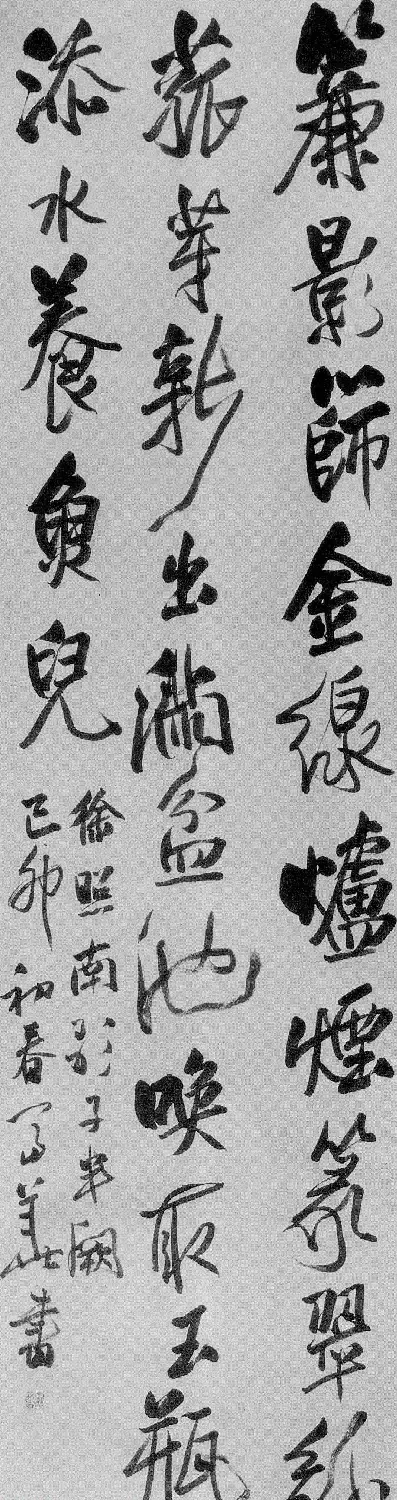 簾影篩金線爐煙篆翠絲
菰芽新出滿盆池喚取玉瓶
添水養魚兒
徐照南歌子半闕
己卯初春書